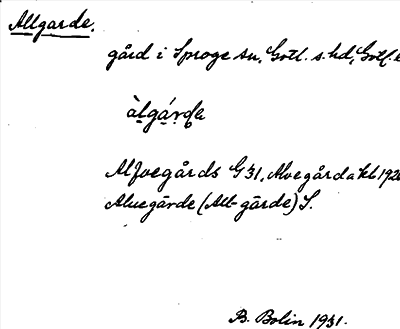 Allgarde.
gård i Sproge sn, Gotl. s. hd, Gotl.
àlgárda
Alfvegårds G31, Alvegårda kb 192
Alvegärde (All-gärde) S.
B. Bolin 1931.